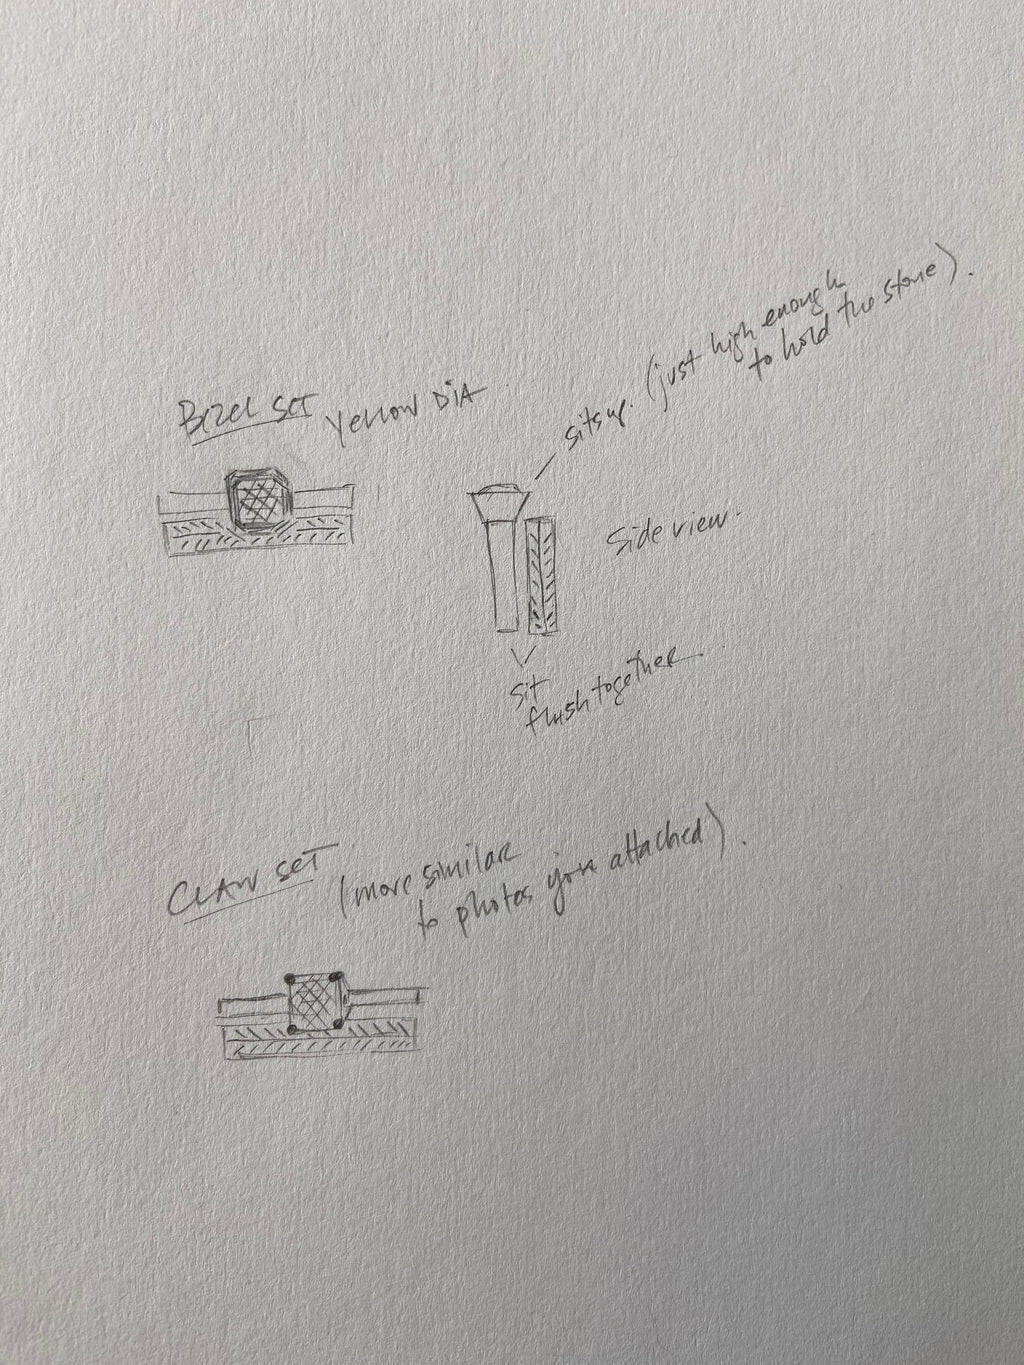 BEZEL SET
Yellow DIA
sits up. (just high enough
to hold the stone).
Side view.
sit
flush together
CLAW SET (more similar
to photos you attached).